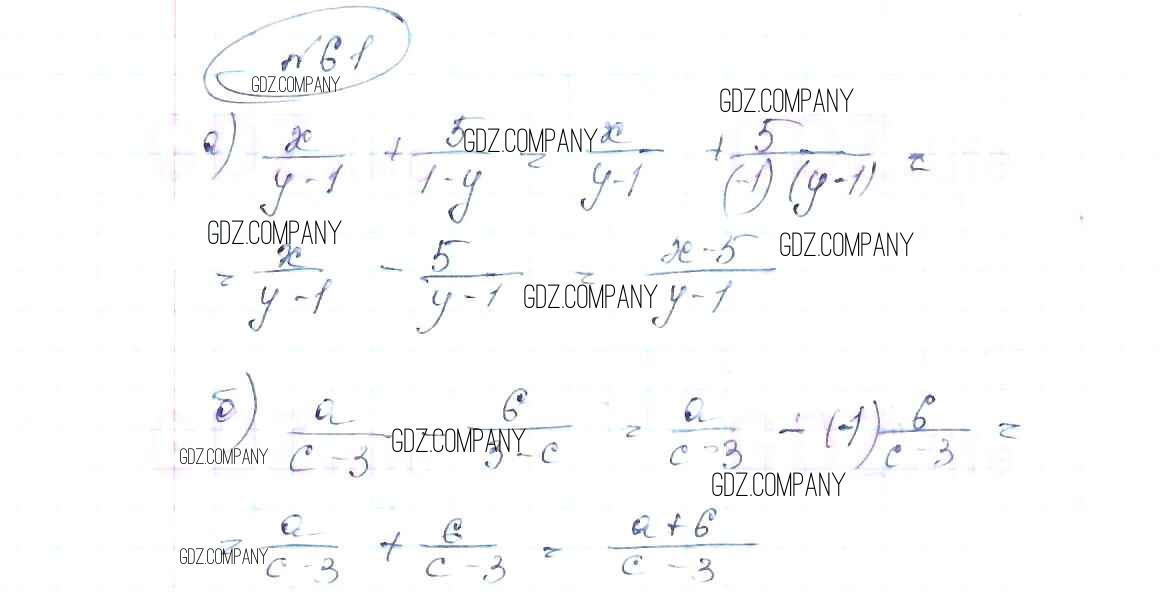 № 61
GDZ.COMPANY
GDZ.COMPANY
а) x/(y-1) + 5/(1-y) = x/(y-1) + 5/((-1)(y-1)) =
GDZ.COMPANY
GDZ.COMPANY
= x/(y-1) - 5/(y-1) = (x-5)/(y-1)
GDZ.COMPANY
GDZ.COMPANY
б) a/(c-3) - 6/(3-c) = a/(c-3) - (-1) 6/(c-3) =
GDZ.COMPANY
GDZ.COMPANY
GDZ.COMPANY
= a/(c-3) + 6/(c-3) = (a+6)/(c-3)
GDZ.COMPANY